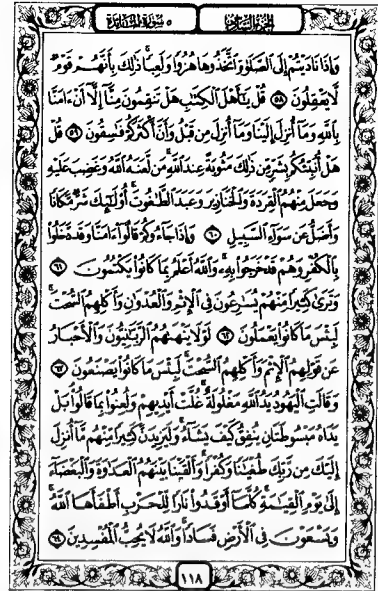 الجزء السادس ٥ سورة المائدة
وَإِذَا نَادَيْتُمْ إِلَى الصَّلَوٰةِ اتَّخَذُوهَا هُزُوًا وَلَعِبًا ذَٰلِكَ بِأَنَّهُمْ قَوْمٌ
لَا يَعْقِلُونَ ٥٨ قُلْ يَٰأَهْلَ الْكِتَٰبِ هَلْ تَنقِمُونَ مِنَّا إِلَّا أَنْ ءَامَنَّا
بِاللَّهِ وَمَا أُنزِلَ إِلَيْنَا وَمَا أُنزِلَ مِن قَبْلُ وَأَنَّ أَكْثَرَكُمْ فَٰسِقُونَ ٥٩ قُلْ
هَلْ أُنَبِّئُكُم بِشَرٍّ مِّن ذَٰلِكَ مَثُوبَةً عِندَ اللَّهِ مَن لَّعَنَهُ اللَّهُ وَغَضِبَ عَلَيْهِ
وَجَعَلَ مِنْهُمُ الْقِرَدَةَ وَالْخَنَازِيرَ وَعَبَدَ الطَّٰغُوتَ أُولَٰئِكَ شَرٌّ مَّكَانًا
وَأَضَلُّ عَن سَوَاءِ السَّبِيلِ ٦٠ وَإِذَا جَاءُوكُمْ قَالُوا ءَامَنَّا وَقَد دَّخَلُوا
بِالْكُفْرِ وَهُمْ قَدْ خَرَجُوا بِهِ وَاللَّهُ أَعْلَمُ بِمَا كَانُوا يَكْتُمُونَ ٦١
وَتَرَىٰ كَثِيرًا مِّنْهُمْ يُسَٰرِعُونَ فِي الْإِثْمِ وَالْعُدْوَٰنِ وَأَكْلِهِمُ السُّحْتَ
لَبِئْسَ مَا كَانُوا يَعْمَلُونَ ٦٢ لَوْلَا يَنْهَىٰهُمُ الرَّبَّٰنِيُّونَ وَالْأَحْبَارُ
عَن قَوْلِهِمُ الْإِثْمَ وَأَكْلِهِمُ السُّحْتَ لَبِئْسَ مَا كَانُوا يَصْنَعُونَ ٦٣
وَقَالَتِ الْيَهُودُ يَدُ اللَّهِ مَغْلُولَةٌ غُلَّتْ أَيْدِيهِمْ وَلُعِنُوا بِمَا قَالُوا بَلْ
يَدَاهُ مَبْسُوطَتَانِ يُنفِقُ كَيْفَ يَشَاءُ وَلَيَزِيدَنَّ كَثِيرًا مِّنْهُم مَّا أُنزِلَ
إِلَيْكَ مِن رَّبِّكَ طُغْيَٰنًا وَكُفْرًا وَأَلْقَيْنَا بَيْنَهُمُ الْعَدَٰوَةَ وَالْبَغْضَاءَ
إِلَىٰ يَوْمِ الْقِيَٰمَةِ كُلَّمَا أَوْقَدُوا نَارًا لِّلْحَرْبِ أَطْفَأَهَا اللَّهُ
وَيَسْعَوْنَ فِي الْأَرْضِ فَسَادًا وَاللَّهُ لَا يُحِبُّ الْمُفْسِدِينَ ٦٤
١١٨